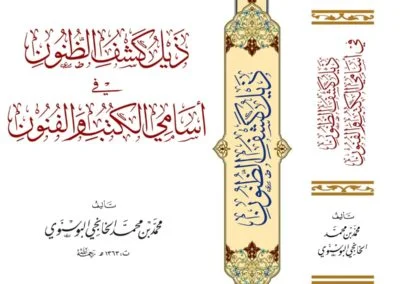 ذيل كشف الظنون
في
أسامي الكتب والفنون
تأليف
محمد بن محمد الخانجي البوسنوي
ت ١٣٦٣ هـ رحمه الله
ذيل كشف الظنون
ذيل كشف الظنون
في أسامي الكتب والفنون
تأليف
محمد بن محمد
الخانجي البوسنوي